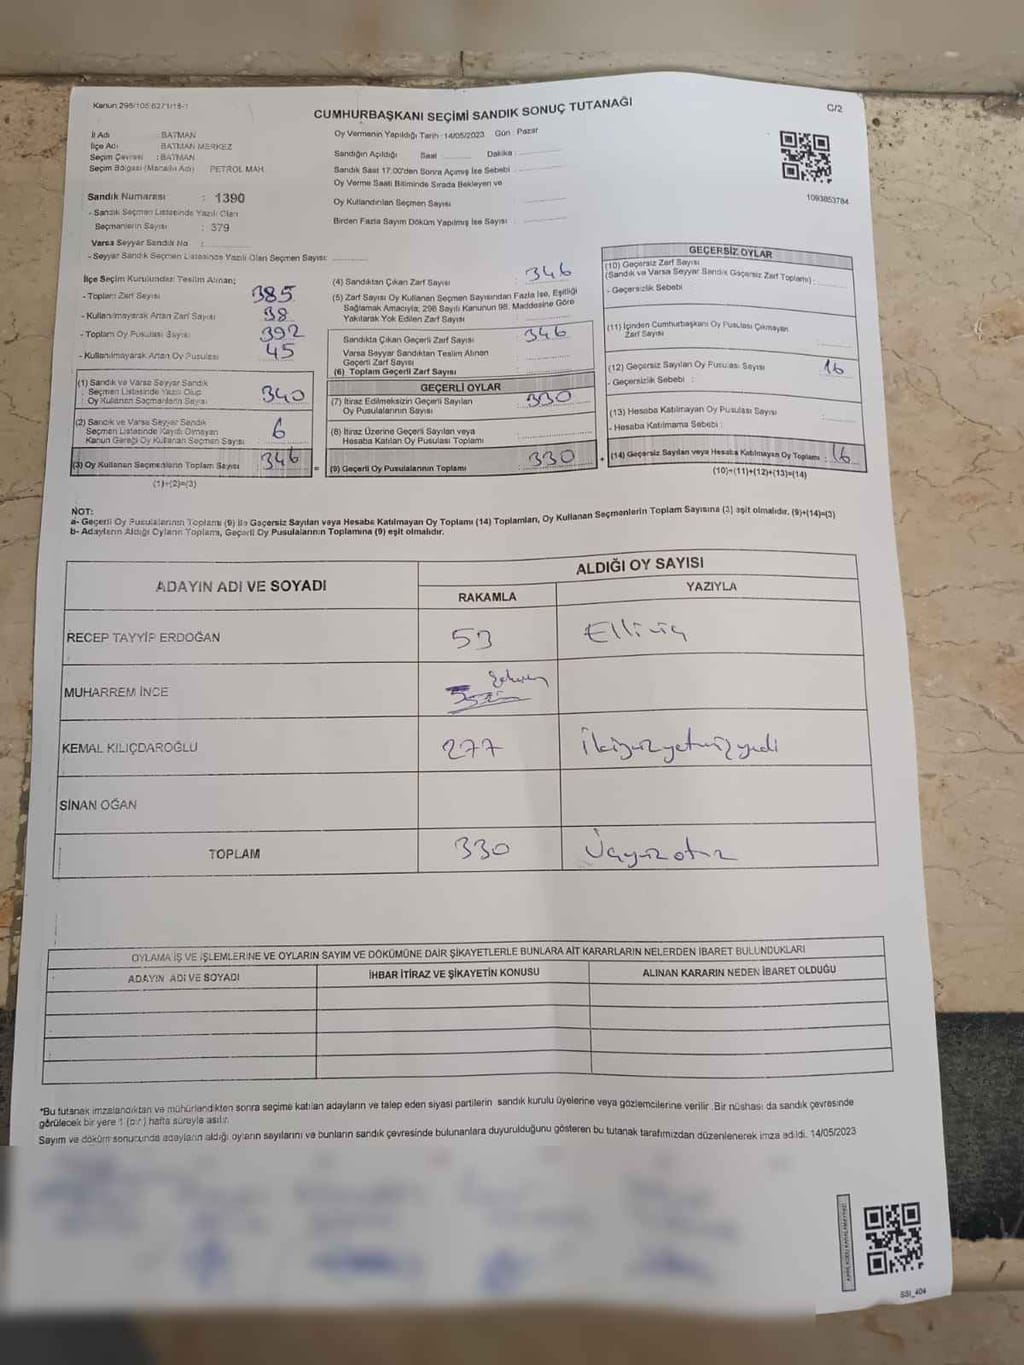 Kanun 298/105 6271/18-1
CUMHURBAŞKANI SEÇİMİ SANDIK SONUÇ TUTANAĞI
C/2
İl Adı : BATMAN
İlçe Adı : BATMAN MERKEZ
Seçim Çevresi : BATMAN
Seçim Bölgesi (Mahalle Adı) PETROL MAH.
Oy Vermenin Yapıldığı Tarih :14/05/2023 Gün : Pazar
Sandığın Açıldığı Saat Dakika :
Sandık Saat 17.00'den Sonra Açımış İse Sebebi
Oy Verme Saati Bitiminde Sırada Bekleyen ve
Oy Kullandırılan Seçmen Sayısı
Birden Fazla Sayım Döküm Yapılmış İse Sayısı :
1093853784
Sandık Numarası : 1390
- Sandık Seçmen Listesinde Yazılı Olan
Seçmenlerin Sayısı : 379
Varsa Seyyar Sandık No :
- Seyyar Sandık Seçmen Listesinde Yazılı Olan Seçmen Sayısı:
İlçe Seçim Kurulundan Teslim Alınan;
- Toplam Zarf Sayısı 385
- Kullanılmayarak Artan Zarf Sayısı 38
- Toplam Oy Pusulası Sayısı 392
- Kullanılmayarak Artan Oy Pusulası 45
(1) Sandık ve Varsa Seyyar Sandık
Seçmen Listesinde Yazılı Olup
Oy Kullanan Seçmenlerin Sayısı 340
(2) Sandık ve Varsa Seyyar Sandık
Seçmen Listesinde Kayıtlı Olmayan
Kanun Gereği Oy Kullanan Seçmen Sayısı 6
(3) Oy Kullanan Seçmenlerin Toplam Sayısı 346
(1)+(2)=(3)
(4) Sandıktan Çıkan Zarf Sayısı : 346
(5) Zarf Sayısı Oy Kullanan Seçmen Sayısından Fazla İse, Eşitliği
Sağlamak Amacıyla; 298 Sayılı Kanunun 98. Maddesine Göre
Yakılarak Yok Edilen Zarf Sayısı
Sandıkta Çıkan Geçerli Zarf Sayısı 346
Varsa Seyyar Sandıktan Teslim Alınan
Geçerli Zarf Sayısı
(6) Toplam Geçerli Zarf Sayısı
GEÇERLİ OYLAR
(7) İtiraz Edilmeksizin Geçerli Sayılan
Oy Pusulalarının Sayısı 330
(8) İtiraz Üzerine Geçerli Sayılan veya
Hesaba Katılan Oy Pusulası Toplamı
= (9) Geçerli Oy Pusulalarının Toplamı : 330
GEÇERSİZ OYLAR
(10) Geçersiz Zarf Sayısı
(Sandık ve Varsa Seyyar Sandık Geçersiz Zarf Toplamı) :
- Geçersizlik Sebebi
(11) İçinden Cumhurbaşkanı Oy Pusulası Çıkmayan
Zarf Sayısı
(12) Geçersiz Sayılan Oy Pusulası Sayısı 16
- Geçersizlik Sebebi :
(13) Hesaba Katılmayan Oy Pusulası Sayısı
- Hesaba Katılmama Sebebi :
+ (14) Geçersiz Sayılan veya Hesaba Katılmayan Oy Toplamı : 16
(10)+(11)+(12)+(13)=(14)
NOT:
a- Geçerli Oy Pusulalarının Toplamı (9) ile Geçersiz Sayılan veya Hesaba Katılmayan Oy Toplamı (14) Toplamları, Oy Kullanan Seçmenlerin Toplam Sayısına (3) eşit olmalıdır. (9)+(14)=(3)
b- Adayların Aldığı Oyların Toplamı, Geçerli Oy Pusulalarının Toplamına (9) eşit olmalıdır.
ADAYIN ADI VE SOYADI
ALDIĞI OY SAYISI
RAKAMLA YAZIYLA
RECEP TAYYİP ERDOĞAN 53 Elliüç
MUHARREM İNCE
KEMAL KILIÇDAROĞLU 277 İkiyüzyetmişyedi
SİNAN OĞAN
TOPLAM 330 Üçyüzotuz
OYLAMA İŞ VE İŞLEMLERİNE VE OYLARIN SAYIM VE DÖKÜMÜNE DAİR ŞİKAYETLERLE BUNLARA AİT KARARLARIN NELERDEN İBARET BULUNDUKLARI
ADAYIN ADI VE SOYADI İHBAR İTİRAZ VE ŞİKAYETİN KONUSU ALINAN KARARIN NEDEN İBARET OLDUĞU
*Bu tutanak imzalandıktan ve mühürlendikten sonra seçime katılan adayların ve talep eden siyasi partilerin sandık kurulu üyelerine veya gözlemcilerine verilir. Bir nüshası da sandık çevresinde
görülecek bir yere 1 (bir) hafta süreyle asılır.
Sayım ve döküm sonucunda adayların aldığı oyların sayılarını ve bunların sandık çevresinde bulunanlara duyurulduğunu gösteren bu tutanak tarafımızdan düzenlenerek imza edildi. 14/05/2023
SSI_404